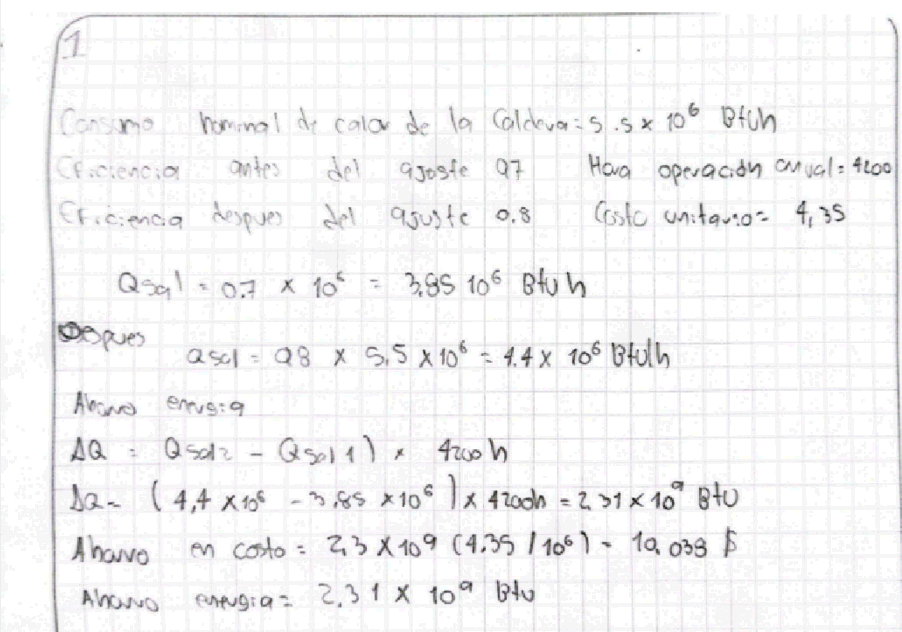 1
Consumo nominal de calor de la Caldera = 5.5 x 10⁶ Btuh
Eficiencia antes del ajuste 0.7 Hora operación anual = 4200
Eficiencia despues del ajuste 0.8 Costo unitario = 4,35
Qsal = 0.7 x 10⁶ = 3,85 10⁶ Btu h
Despues
Qsal = 0.8 x 5,5 x 10⁶ = 4.4 x 10⁶ Btu/h
Ahorro energia
ΔQ = Qsal2 - Qsal 1) x 4200 h
ΔQ = (4,4 x 10⁶ - 3,85 x 10⁶) x 4200h = 2,31 x 10⁹ Btu
Ahorro en costo = 2,3 x 10⁹ (4.35 / 10⁶) = 10,038 $
Ahorro energia = 2,31 x 10⁹ Btu